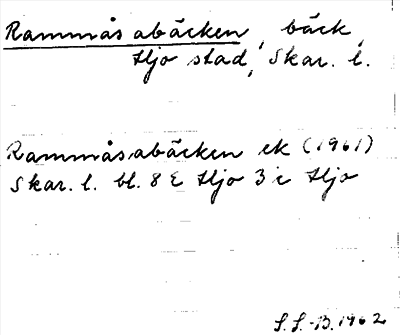 Rammåsabäcken, bäck,
Hjo stad, Skar. l.
Rammåsabäcken ek (1961)
Skar. l. bl. 8 E Hjo 3 c Hjo
S. L.-B. 1962